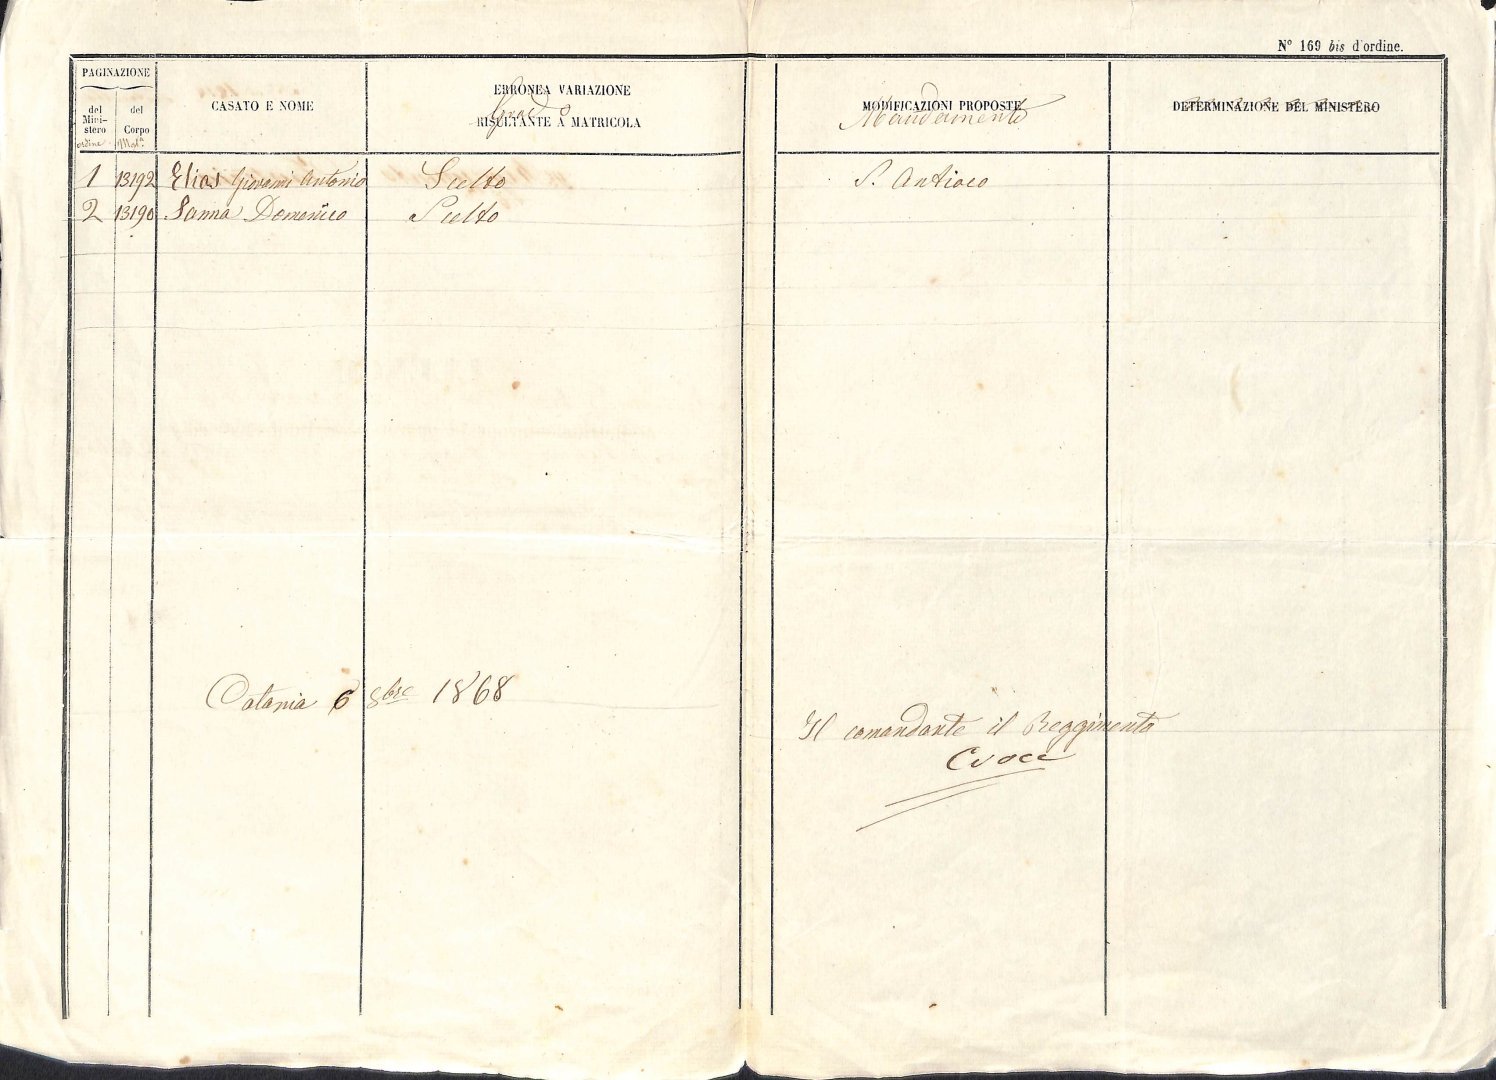 Nº 169 bis d'ordine.
PAGINAZIONE
del Mini-stero
del Corpo
ordine
Mat.ª
CASATO E NOME
ERRONEA VARIAZIONE
RISULTANTE A MATRICOLA
Grado
MODIFICAZIONI PROPOSTE
Mandamento
DETERMINAZIONE DEL MINISTERO
1 13192 Elias Giovanni Antonio Scelto S. Antioco
2 13190 Sanna Domenico Scelto
Catania 6 8bre 1868
Il comandante il Reggimento